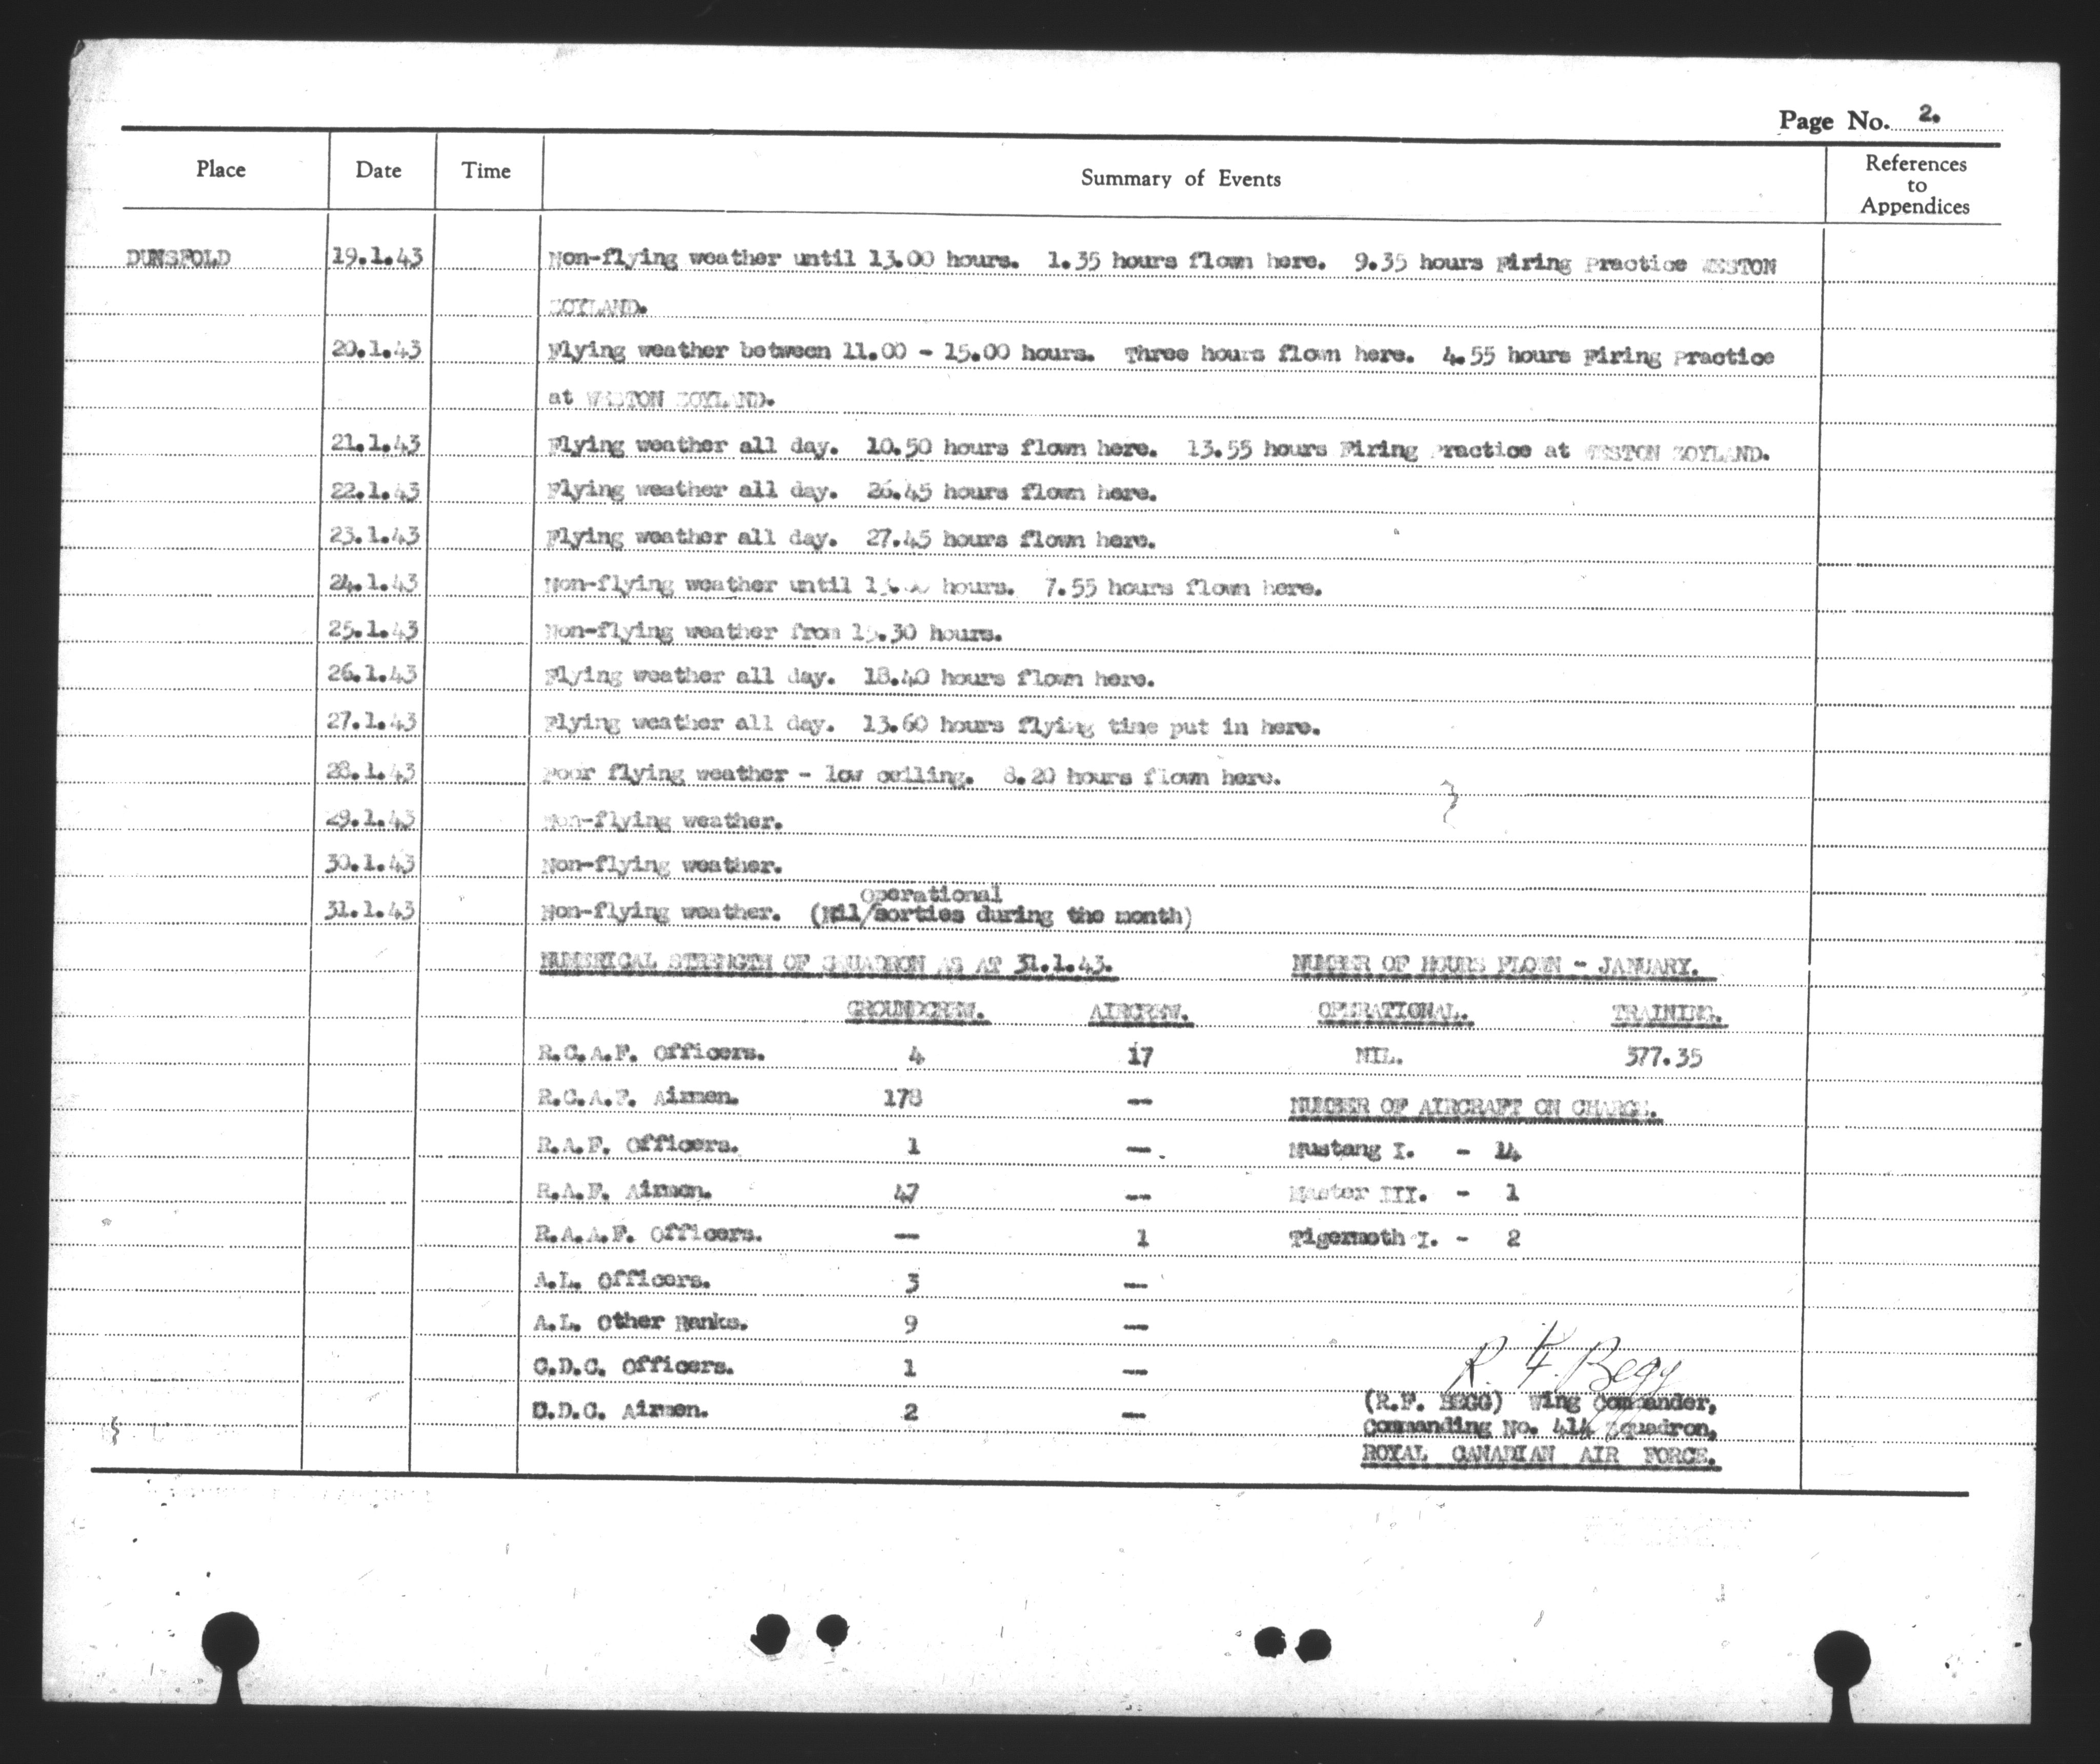 Page No. 2.
Place Date Time Summary of Events References to Appendices
DUNSFOLD 19.1.43 Non-flying weather until 13.00 hours. 1.35 hours flown here. 9.35 hours Firing Practice WESTON
ZOYLAND.
20.1.43 Flying weather between 11.00 - 15.00 hours. Three hours flown here. 4.55 hours Firing Practice
at WESTON ZOYLAND.
21.1.43 Flying weather all day. 10.50 hours flown here. 13.55 hours Firing Practice at WESTON ZOYLAND.
22.1.43 Flying weather all day. 26.45 hours flown here.
23.1.43 Flying weather all day. 27.45 hours flown here.
24.1.43 Non-flying weather until hours. 7.55 hours flown here.
25.1.43 Non-flying weather from hours.
26.1.43 Flying weather all day. 18.40 hours flown here.
27.1.43 Flying weather all day. 13.60 hours flying time put in here.
28.1.43 Poor flying weather - low ceiling. 8.20 hours flown here.
29.1.43 Non-flying weather.
30.1.43 Non-flying weather.
operational
31.1.43 Non-flying weather. (Nil/sorties during the month)
NUMERICAL STRENGTH OF SQUADRON AS AT 31.1.43. NUMBER OF HOURS FLOWN - JANUARY.
GROUNDCREW. AIRCREW. OPERATIONAL. TRAINING.
R.C.A.F. Officers. 4 17 NIL. 377.35
R.C.A.F. Airmen. 178 — NUMBER OF AIRCRAFT ON CHARGE.
R.A.F. Officers. 1 — Mustang I. - 14
R.A.F. Airmen. 47 — Master III. - 1
R.A.A.F. Officers. — 1 Tigermoth I. - 2
A.L. Officers. 3 —
A.L. Other Ranks. 9 —
C.D.C. Officers. 1 —
R. F. Begg
C.D.C. Airmen. 2 — (R.F. BEGG) Wing Commander,
Commanding No. 414 Squadron,
ROYAL CANADIAN AIR FORCE.